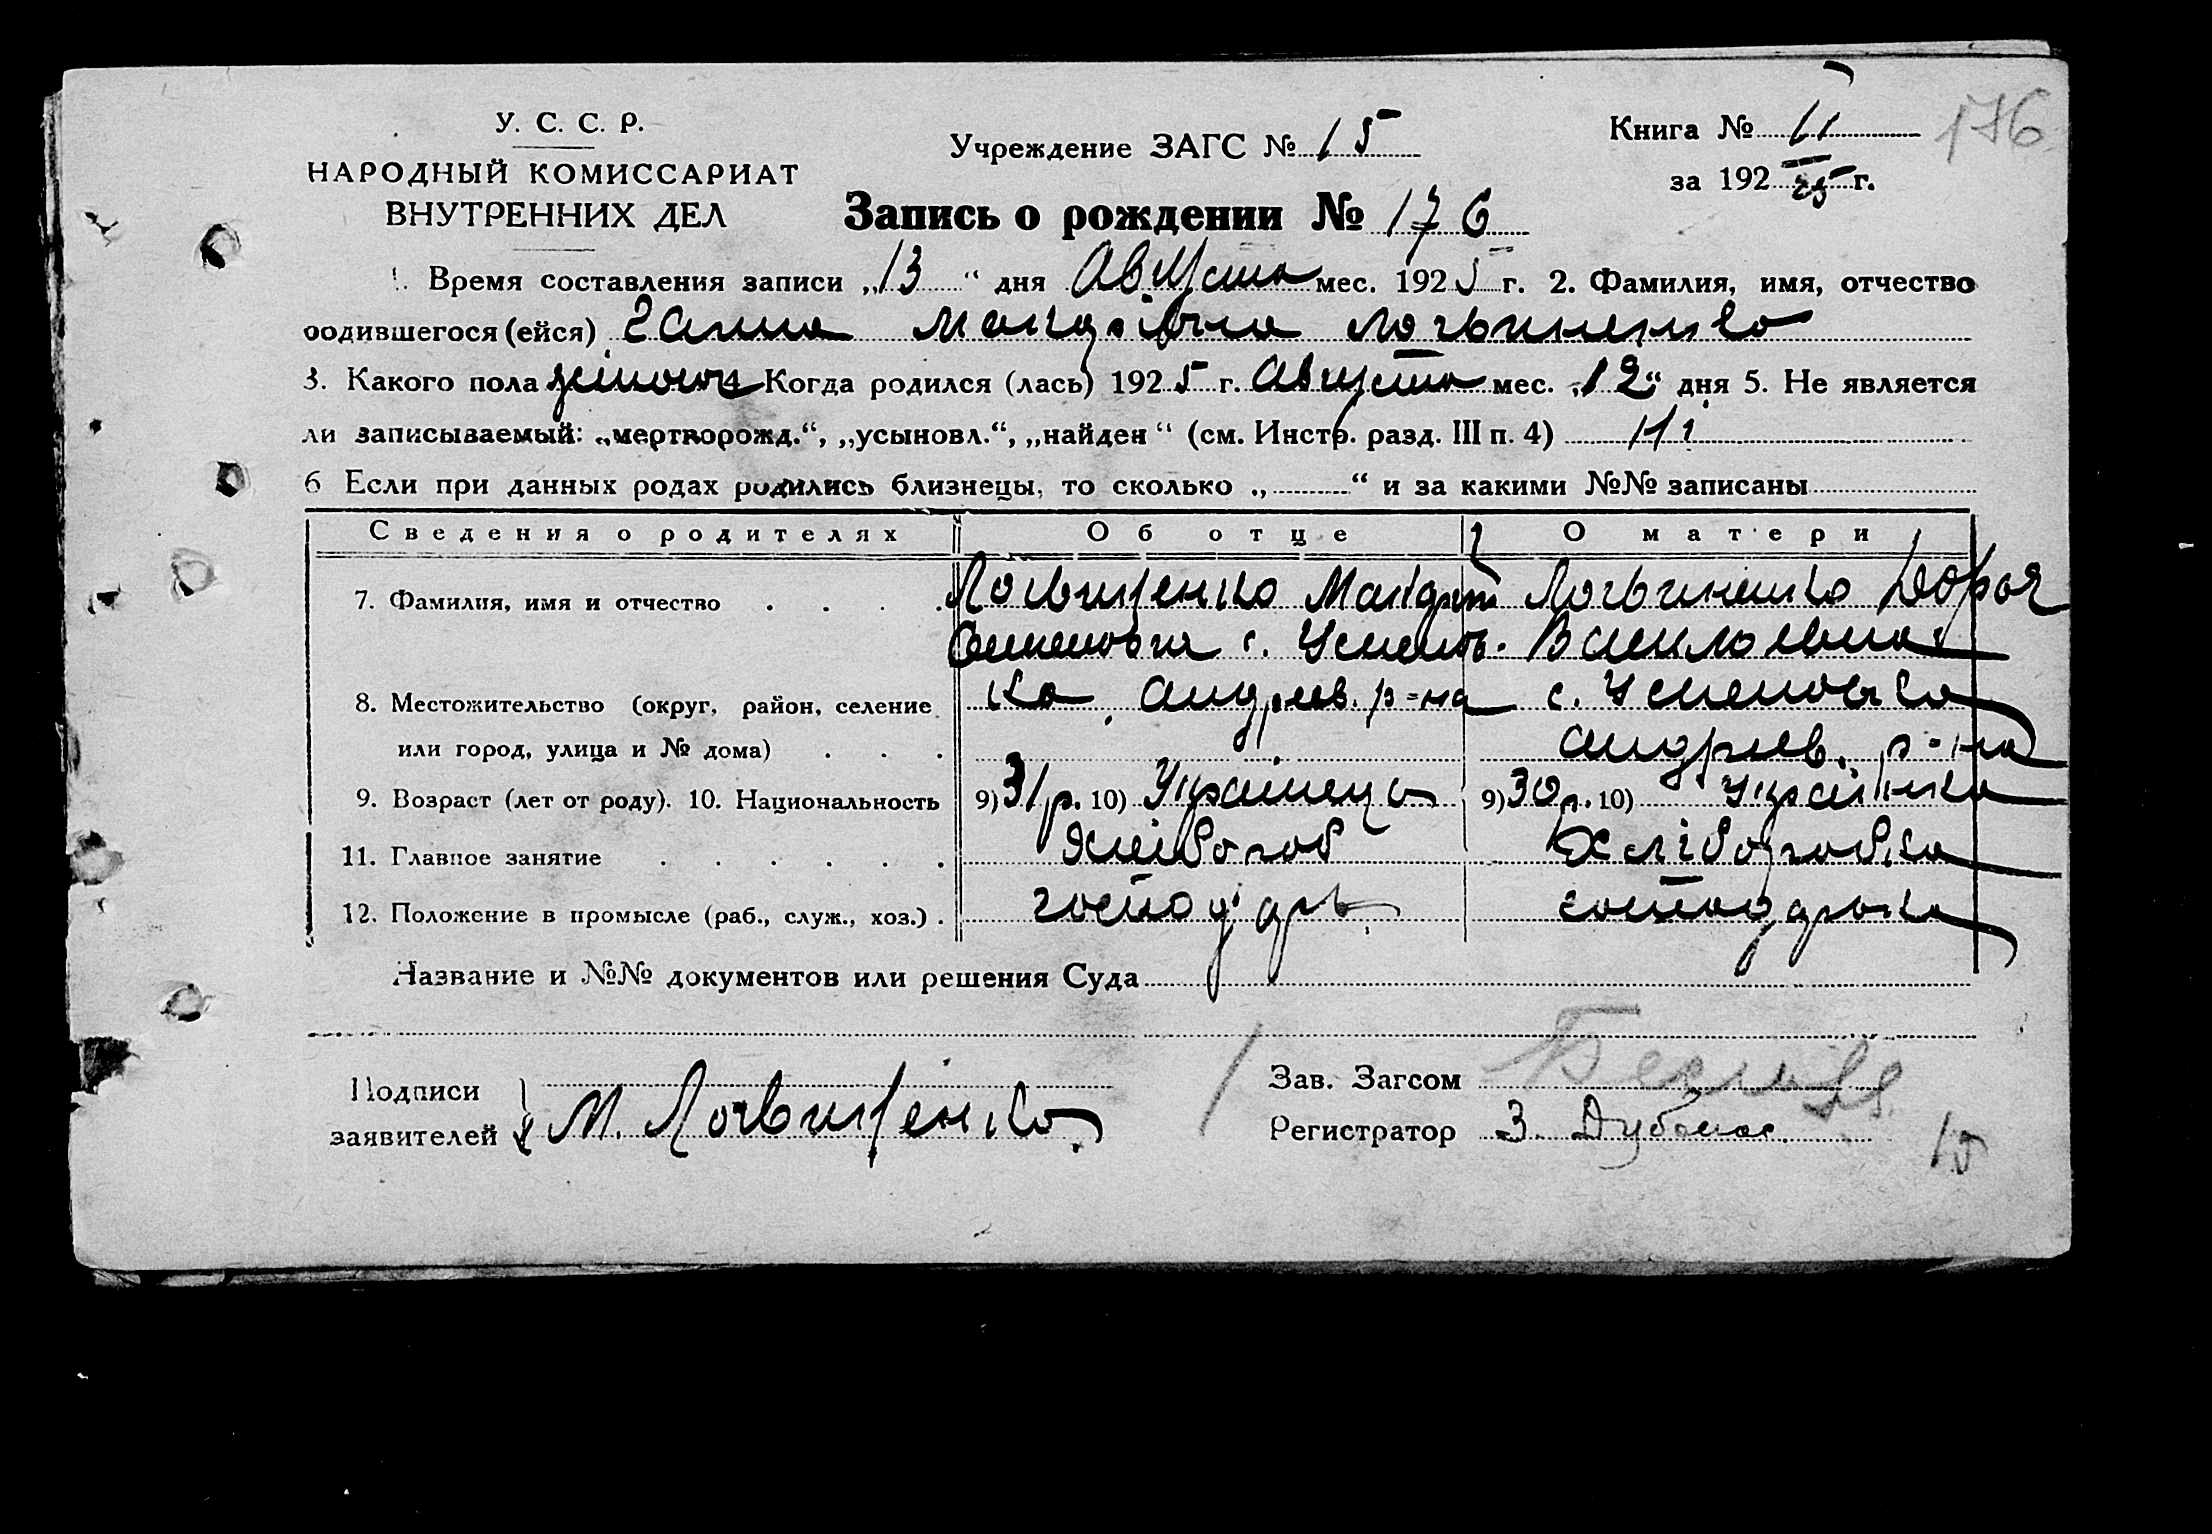 У. С. С. Р.
НАРОДНЫЙ КОМИССАРИАТ
ВНУТРЕННИХ ДЕЛ
Учреждение ЗАГС № 15
Книга № II
176
за 1925 г.
Запись о рождении № 176
1. Время составления записи „13“ дня Августа мес. 1925 г. 2. Фамилия, имя, отчество
родившегося (ейся) Ганна Логвиненко
3. Какого пола жіночої 4 Когда родился (лась) 1925 г. Августа мес. „12“ дня 5. Не является
ли записываемый: „мертворожд.“, „усыновл.“, „найден“ (см. Инстр. разд. III п. 4) Ні
6 Если при данных родах родились близнецы, то сколько „ “ и за какими №№ записаны
Сведения о родителях Об отце О матери
7. Фамилия, имя и отчество Логвиненко Логвиненко Дарья
с. Успенов- Василовна
8. Местожительство (округ, район, селение ка, Андреев. р-на с. Успеновка
или город, улица и № дома) Андреев. р-на
9. Возраст (лет от роду). 10. Национальность 9) 31 р. 10) Українець 9) 30 р. 10) Українка
11. Главное занятие Хлібороб Хліборобка
12. Положение в промысле (раб., служ., хоз.) господарь
Название и №№ документов или решения Суда
Подписи
заявителей М. Логвиненко
Зав. Загсом
Регистратор З.
15